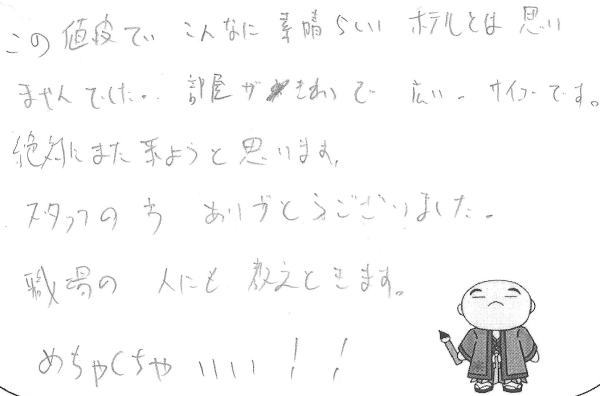 この値段で こんなに 素晴らしい ホテルとは思い
ませんでした。 部屋が きれいで 広い。 サイコーです。
絶対にまた来ようと思います。
スタッフの方 ありがとうございました。
職場の 人にも 教えときます。
めちゃくちゃ いいい!!